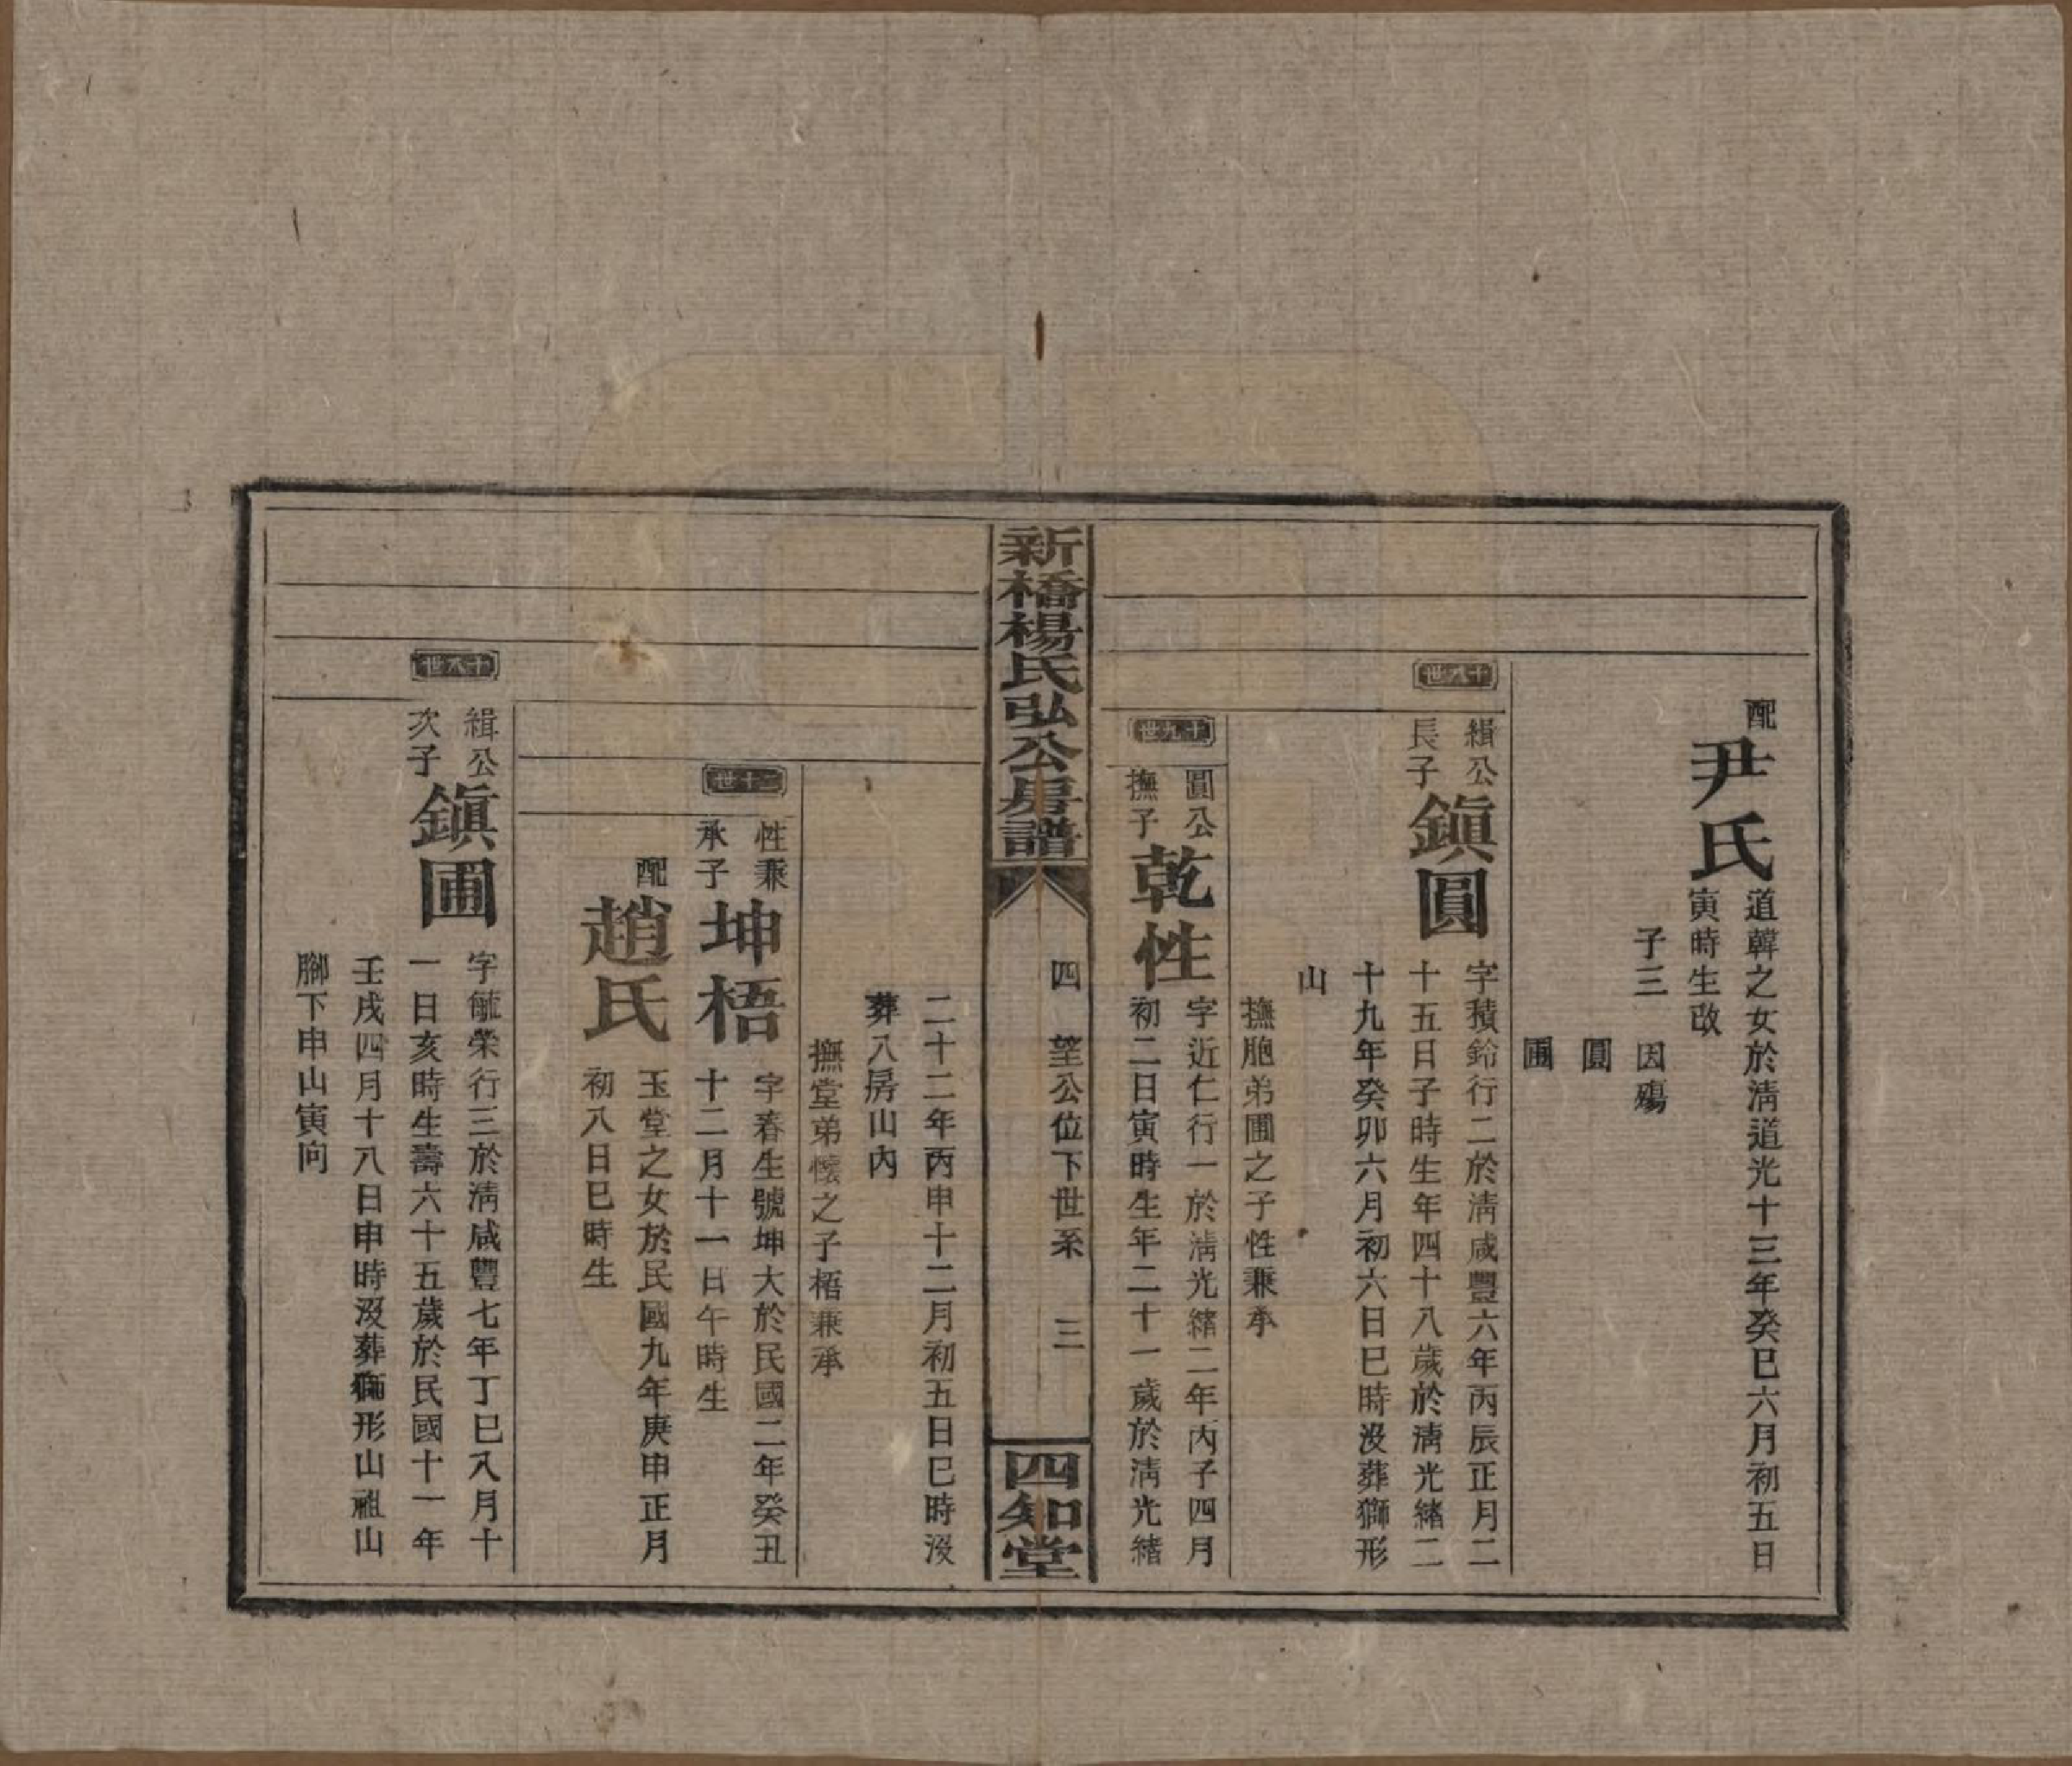 配
尹氏
道韓之女於清道光十三年癸巳六月初五日
寅時生改
子三　因殤
圓
圃
十八世
緝公
長子
鎮圓
字積鈴行二於清咸豐六年丙辰正月二
十五日子時生年四十八歲於清光緒二
十九年癸卯六月初六日巳時沒葬獅形
山
撫胞弟圃之子性兼承
十九世
圓公
撫子
乾性
字近仁行一於清光緒二年丙子四月
初二日寅時生年二十一歲於清光緒
新橋楊氏弘公房譜
四　望公位下世系　三
四知堂
二十二年丙申十二月初五日巳時沒
葬八房山內
撫堂弟懷之子梧兼承
二十世
性兼
承子
坤梧
字春生號坤大於民國二年癸丑
十二月十一日午時生
配
趙氏
玉堂之女於民國九年庚申正月
初八日巳時生
十八世
緝公
次子
鎮圃
字毓榮行三於清咸豐七年丁巳八月十
一日亥時生壽六十五歲於民國十一年
壬戌四月十八日申時沒葬獅形山祖山
腳下申山寅向